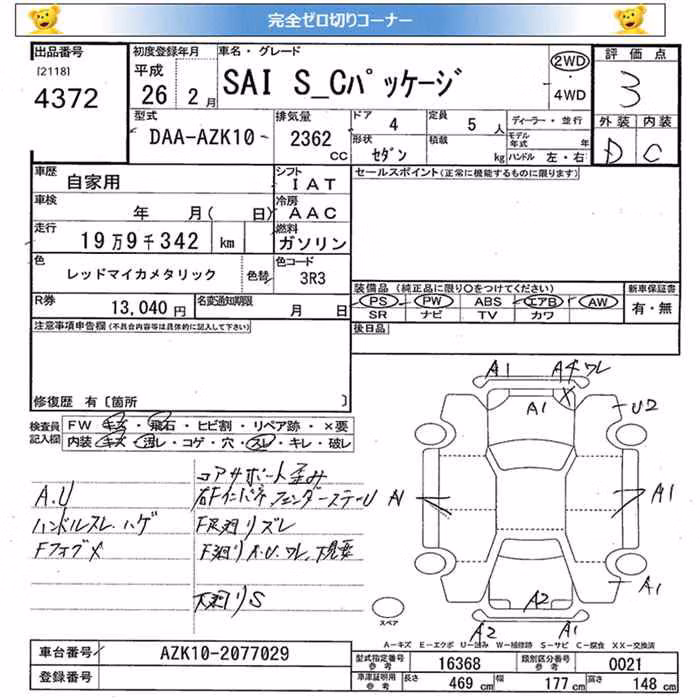 完全ゼロ切りコーナー
出品番号
[2118]
4372
初度登録年月
平成
26 2月
車名・グレード
SAI S_Cパッケージ
2WD
・
4WD
評価点
3
外装 内装
D C
型式
DAA-AZK10
排気量
2362
CC
ドア 4
定員 5 人
形状
セダン
積載
kg
ディーラー・並行
モデル年式 年
ハンドル 左・右
車歴
自家用
シフト
IAT
車検
年 月( 日)
冷房
AAC
走行
19万9千342 km
燃料
ガソリン
色
レッドマイカメタリック
色替
色コード
3R3
R券
13,040円
名変通知期限
月 日
セールスポイント(正常に機能するものに限ります)
装備品(純正品に限り○をつけてください)
PS PW ABS エアB AW
SR ナビ TV カワ
新車保証書
有・無
後日品
注意事項申告欄(不具合内容等は具体的に記入して下さい)
修復歴 有〔箇所 〕
検査員
記入欄
FW キズ・飛石・ヒビ割・リペア跡・×要
内装 キズ・汚レ・コゲ・穴・スレ・キレ・破レ
コアサポート歪み
A.U
右Fインパネ フェンダーステーU
ハンドルスレ、ハゲ
F足廻リズレ
Fフォグメ
F廻リA.U.ワレ、下見要
下廻リS
A1
A4ワレ
X
A1
U2
A1
A1
A1
A2
A2
A1
スペア
A-キズ E-エクボ U-凹み W-補修跡 S-サビ C-腐食 XX-交換済
車台番号
AZK10-2077029
登録番号
型式指定番号
参考
16368
類別区分番号
参考
0021
車庫証明用
参考
長さ 469 cm
幅 177 cm
高さ 148 cm